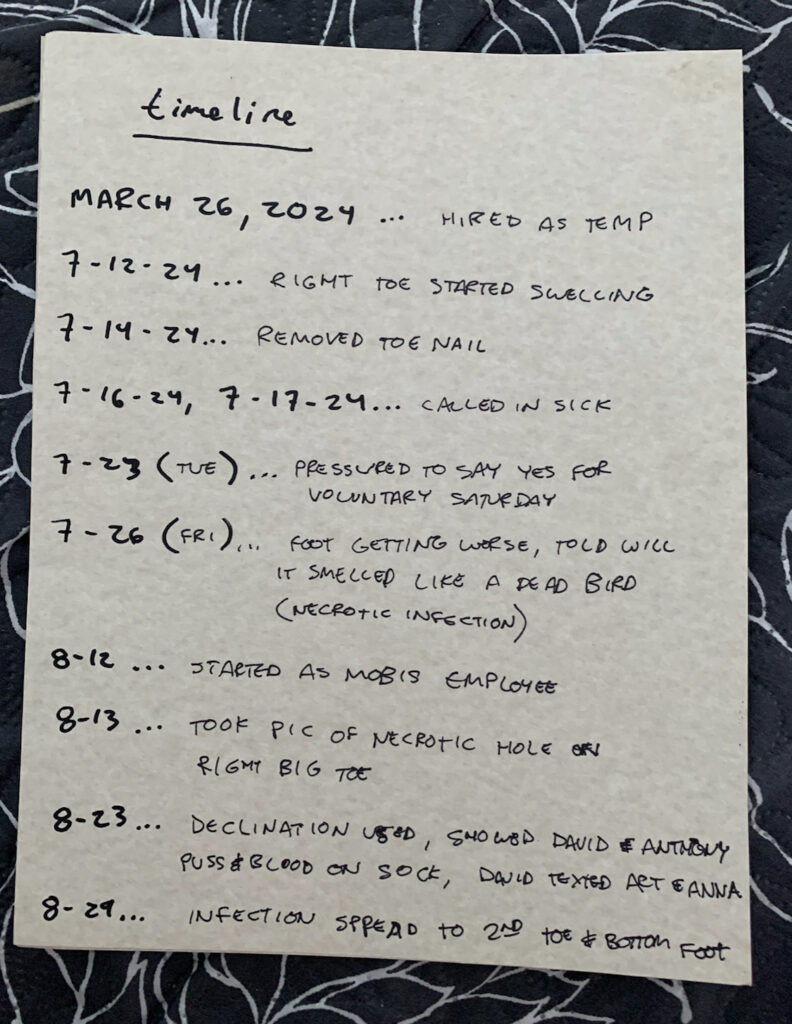 timeline
MARCH 26, 2024 ... HIRED AS TEMP
7-12-24 ... RIGHT TOE STARTED SWELLING
7-14-24... REMOVED TOE NAIL
7-16-24, 7-17-24... CALLED IN SICK
7-23 (TUE) ... PRESSURED TO SAY YES FOR
VOLUNTARY SATURDAY
7-26 (FRI)... FOOT GETTING WORSE, TOLD WILL
IT SMELLED LIKE A DEAD BIRD
(NECROTIC INFECTION)
8-12 ... STARTED AS MOBIS EMPLOYEE
8-13 ... TOOK PIC OF NECROTIC HOLE ON
RIGHT BIG TOE
8-23... DECLINATION USED, SHOWED DAVID & ANTHONY
PUSS & BLOOD ON SOCK, DAVID TEXTED ART & ANNA
8-29... INFECTION SPREAD TO 2ND TOE & BOTTOM FOOT